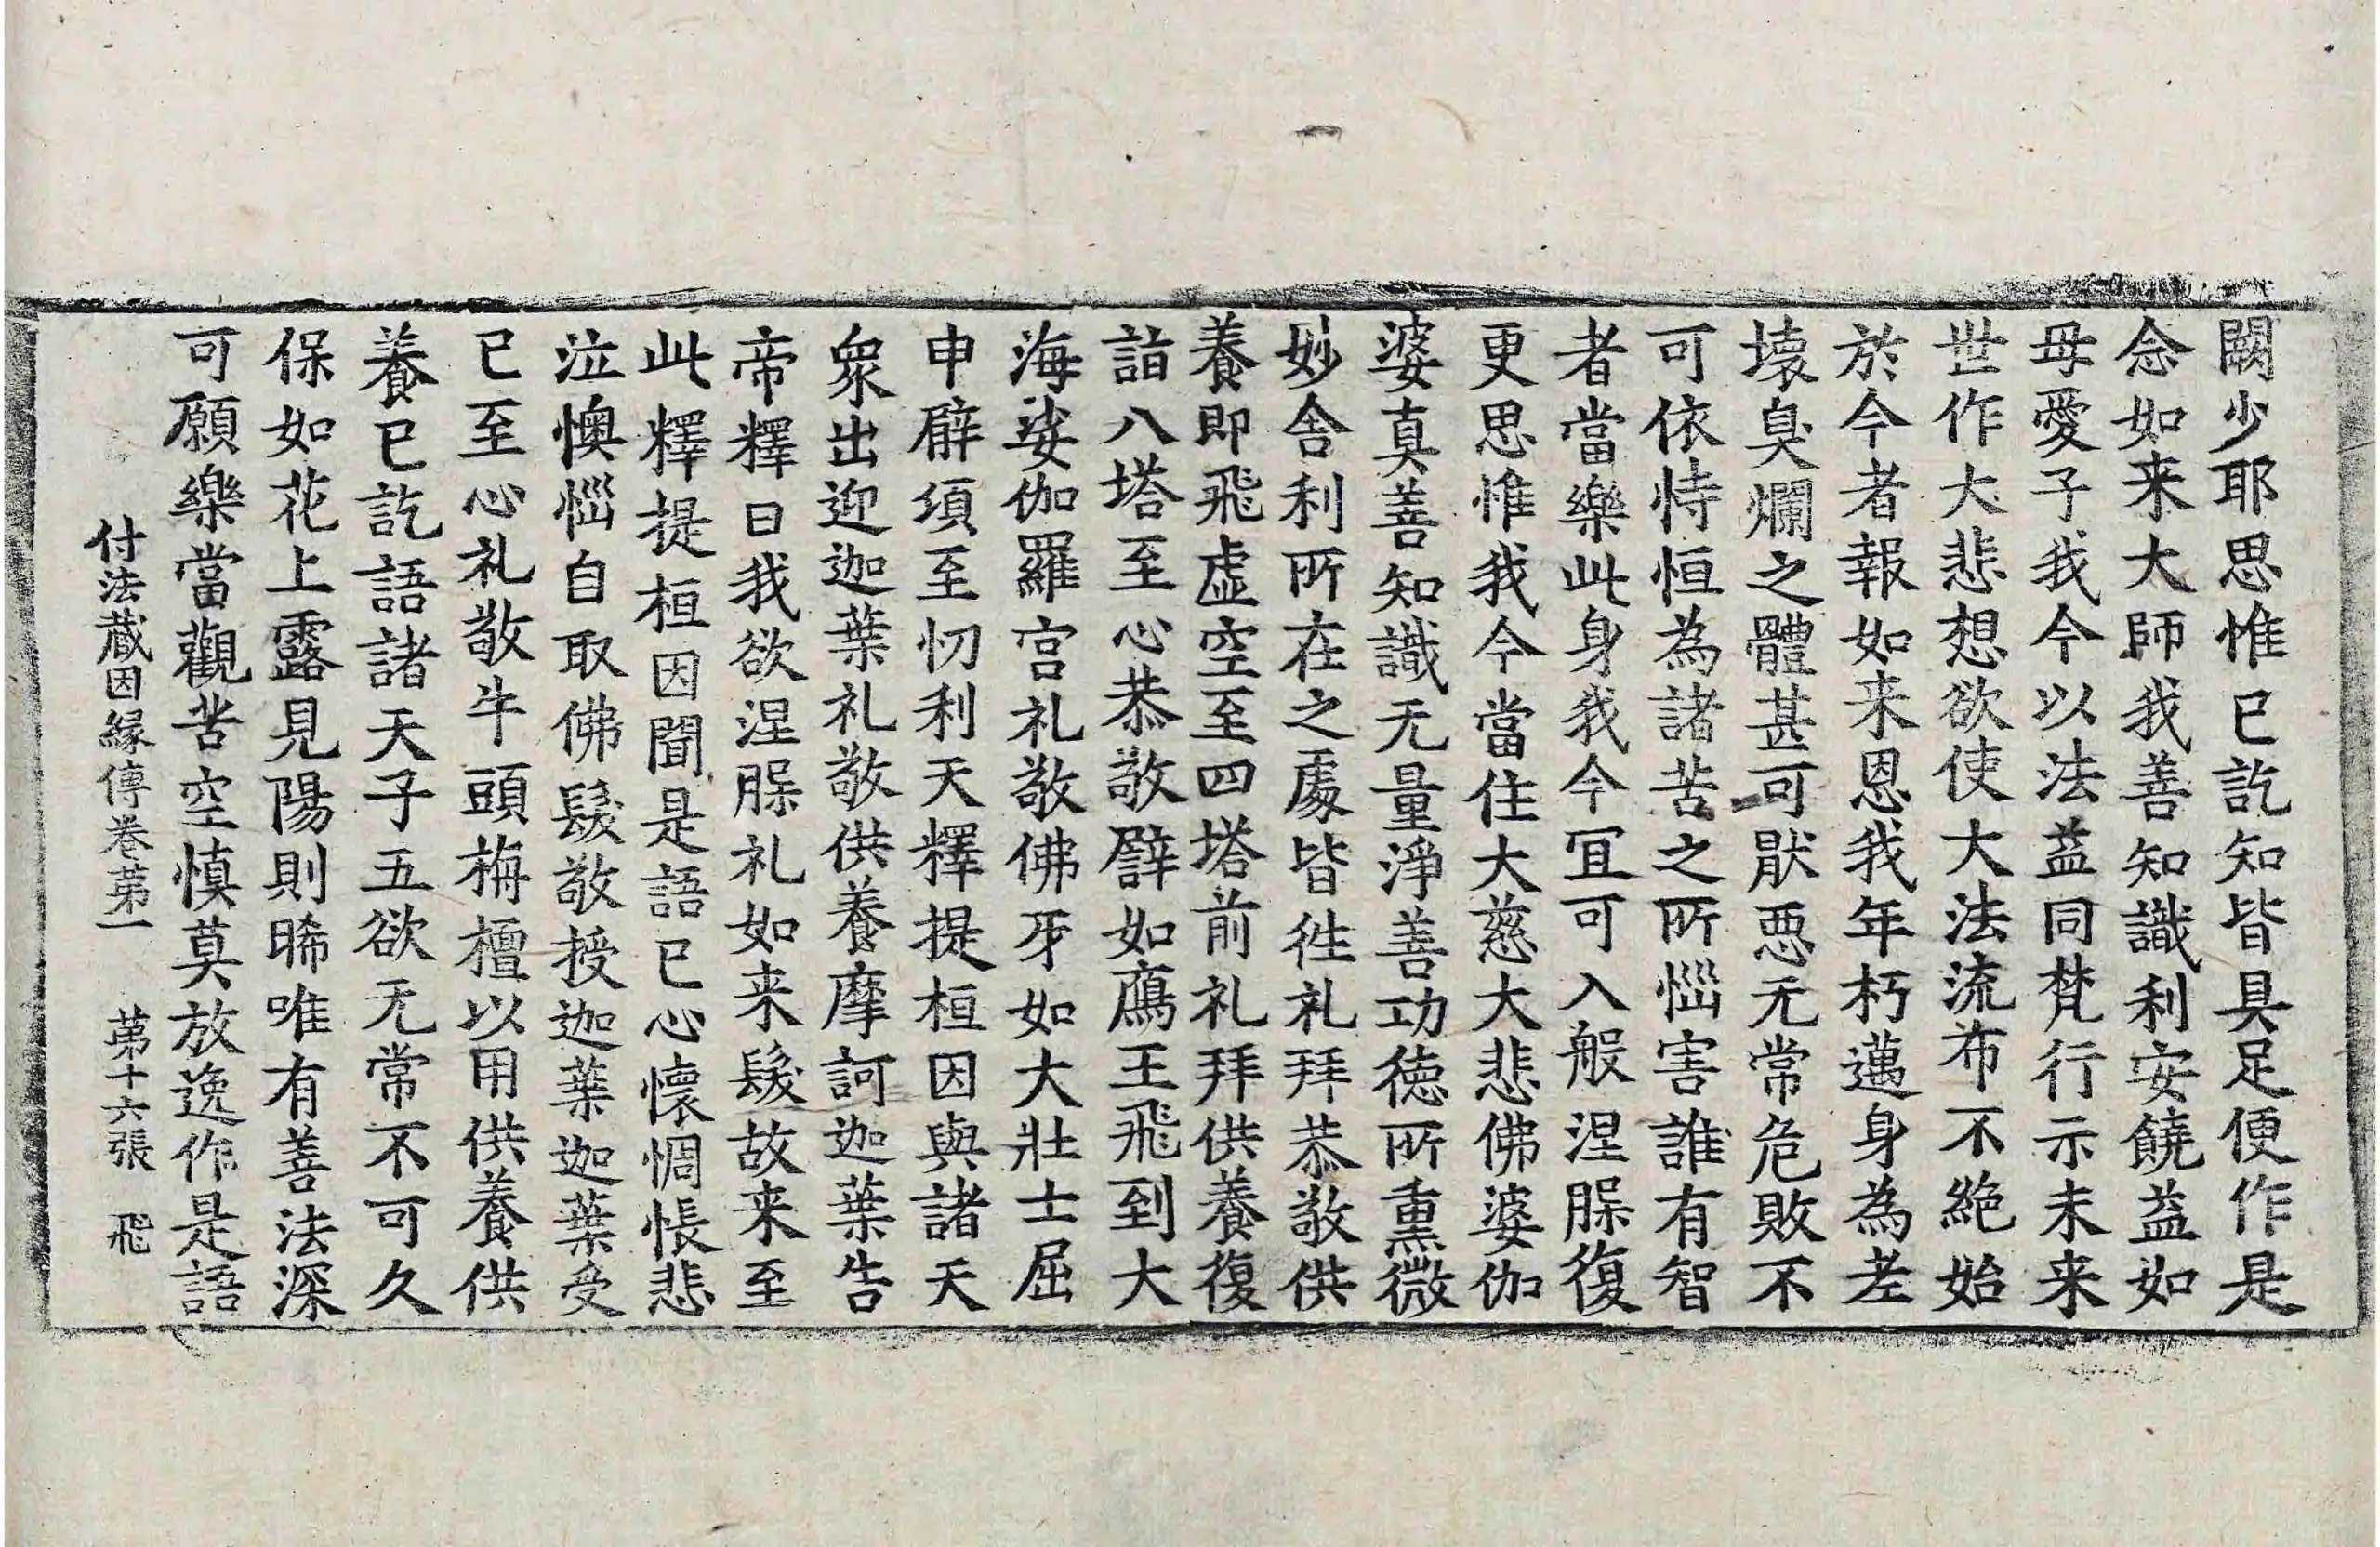 闕少耶思惟已訖知皆具足便作是
念如来大師我善知識利安饒益如
母愛子我今以法益同梵行示未来
世作大悲想欲使大法流布不絶始
於今者報如来恩我年朽邁身為老
壞臭爛之體甚可猒惡无常危敗不
可依恃恒為諸苦之所惱害誰有智
者當樂此身我今冝可入般涅槃復
更思惟我今當住大慈大悲佛婆伽
婆真善知識无量淨善功德所熏微
妙舍利所在之處皆徃礼拜恭敬供
養即飛虛空至四塔前礼拜供養復
詣八塔至心恭敬譬如鴈王飛到大
海娑伽羅宫礼敬佛牙如大壯士屈
申臂頃至忉利天釋提桓因與諸天
衆出迎迦葉礼敬供養摩訶迦葉告
帝釋曰我欲涅槃礼如来髮故来至
此釋提桓因聞是語已心懷惆悵悲
泣懊惱自取佛髮敬授迦葉迦葉受
已至心礼敬牛頭栴檀以用供養供
養已訖語諸天子五欲无常不可久
保如花上露見陽則晞唯有善法深
可願樂當觀苦空慎莫放逸作是語
付法藏因縁傳卷苐一　苐十六張　飛